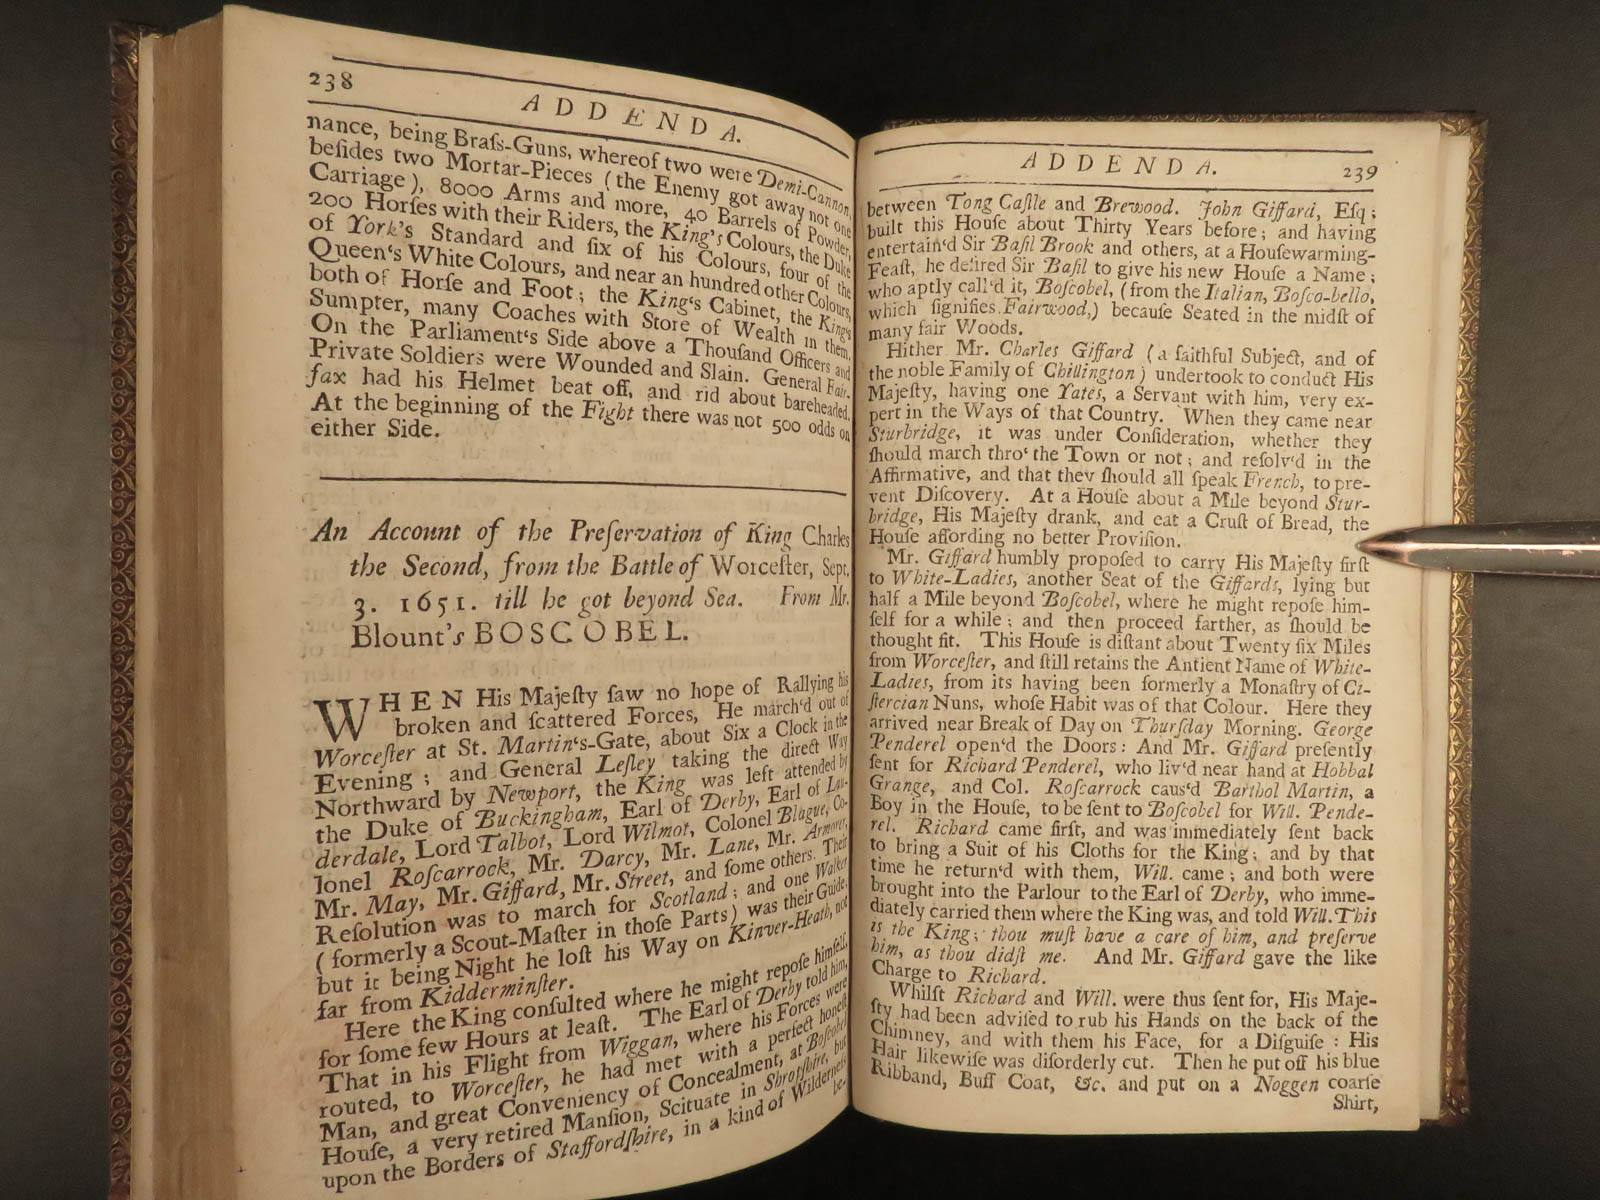 238
ADDENDA.
nance, being Braſs-Guns, whereof two were Demi-Cannon,
beſides two Mortar-Pieces (the Enemy got away not one
Carriage), 8000 Arms and more, 40 Barrels of Powder,
200 Horſes with their Riders, the King's Colours, the Duke
of York's Standard and ſix of his Colours, four of the
Queen's White Colours, and near an hundred other Colours,
both of Horſe and Foot; the King's Cabinet, the King's
Sumpter, many Coaches with Store of Wealth in them.
On the Parliament's Side above a Thouſand Officers and
Private Soldiers were Wounded and Slain. General Fair-
fax had his Helmet beat off, and rid about bareheaded.
At the beginning of the Fight there was not 500 odds on
either Side.
An Account of the Preſervation of King Charles
the Second, from the Battle of Worceſter, Sept.
3. 1651. till he got beyond Sea. From Mr.
Blount's BOSCOBEL.
WHEN His Majeſty ſaw no hope of Rallying his
broken and ſcattered Forces, He march'd out of
Worceſter at St. Martin's-Gate, about Six a Clock in the
Evening; and General Leſley taking the direct Way
Northward by Newport, the King was left attended by
the Duke of Buckingham, Earl of Derby, Earl of Lau-
derdale, Lord Talbot, Lord Wilmot, Colonel Blague, Co-
lonel Roſcarrock, Mr. Darcy, Mr. Lane, Mr. Armorer,
Mr. May, Mr. Giffard, Mr. Street, and ſome others. Their
Reſolution was to march for Scotland; and one Walker
(formerly a Scout-Maſter in thoſe Parts) was their Guide,
but it being Night he loſt his Way on Kinver-Heath, not
far from Kidderminſter.
Here the King conſulted where he might repoſe himſelf,
for ſome few Hours at leaſt. The Earl of Derby told him,
That in his Flight from Wiggan, where his Forces were
routed, to Worceſter, he had met with a perfect honeſt
Man, and great Conveniency of Concealment, at Boſcobel
Houſe, a very retired Manſion, Scituate in Shropſhire, but
upon the Borders of Staffordſhire, in a kind of Wilderneſs
be-
ADDENDA.
239
between Tong Caſtle and Brewood. John Giffard, Eſq;
built this Houſe about Thirty Years before; and having
entertain'd Sir Baſil Brook and others, at a Houſewarming-
Feaſt, he deſired Sir Baſil to give his new Houſe a Name;
who aptly call'd it, Boſcobel, (from the Italian, Boſco-bello,
which ſignifies Fairwood,) becauſe Seated in the midſt of
many fair Woods.
Hither Mr. Charles Giffard (a faithful Subject, and of
the noble Family of Chillington) undertook to conduct His
Majeſty, having one Yates, a Servant with him, very ex-
pert in the Ways of that Country. When they came near
Sturbridge, it was under Conſideration, whether they
ſhould march thro' the Town or not; and reſolv'd in the
Affirmative, and that they ſhould all ſpeak French, to pre-
vent Diſcovery. At a Houſe about a Mile beyond Stur-
bridge, His Majeſty drank, and eat a Cruſt of Bread, the
Houſe affording no better Proviſion.
Mr. Giffard humbly propoſed to carry His Majeſty firſt
to White-Ladies, another Seat of the Giffards, lying but
half a Mile beyond Boſcobel, where he might repoſe him-
ſelf for a while; and then proceed farther, as ſhould be
thought fit. This Houſe is diſtant about Twenty ſix Miles
from Worceſter, and ſtill retains the Antient Name of White-
Ladies, from its having been formerly a Monaſtry of Ci-
ſtercian Nuns, whoſe Habit was of that Colour. Here they
arrived near Break of Day on Thurſday Morning. George
Penderel open'd the Doors: And Mr. Giffard preſently
ſent for Richard Penderel, who liv'd near hand at Hobbal
Grange, and Col. Roſcarrock caus'd Barthol Martin, a
Boy in the Houſe, to be ſent to Boſcobel for Will. Pende-
rel. Richard came firſt, and was immediately ſent back
to bring a Suit of his Cloths for the King; and by that
time he return'd with them, Will. came; and both were
brought into the Parlour to the Earl of Derby, who imme-
diately carried them where the King was, and told Will. This
is the King; thou muſt have a care of him, and preſerve
him, as thou didſt me. And Mr. Giffard gave the like
Charge to Richard.
Whilſt Richard and Will. were thus ſent for, His Maje-
ſty had been adviſed to rub his Hands on the back of the
Chimney, and with them his Face, for a Diſguiſe: His
Hair likewiſe was diſorderly cut. Then he put off his blue
Ribband, Buff Coat, &c. and put on a Noggen coarſe
Shirt,